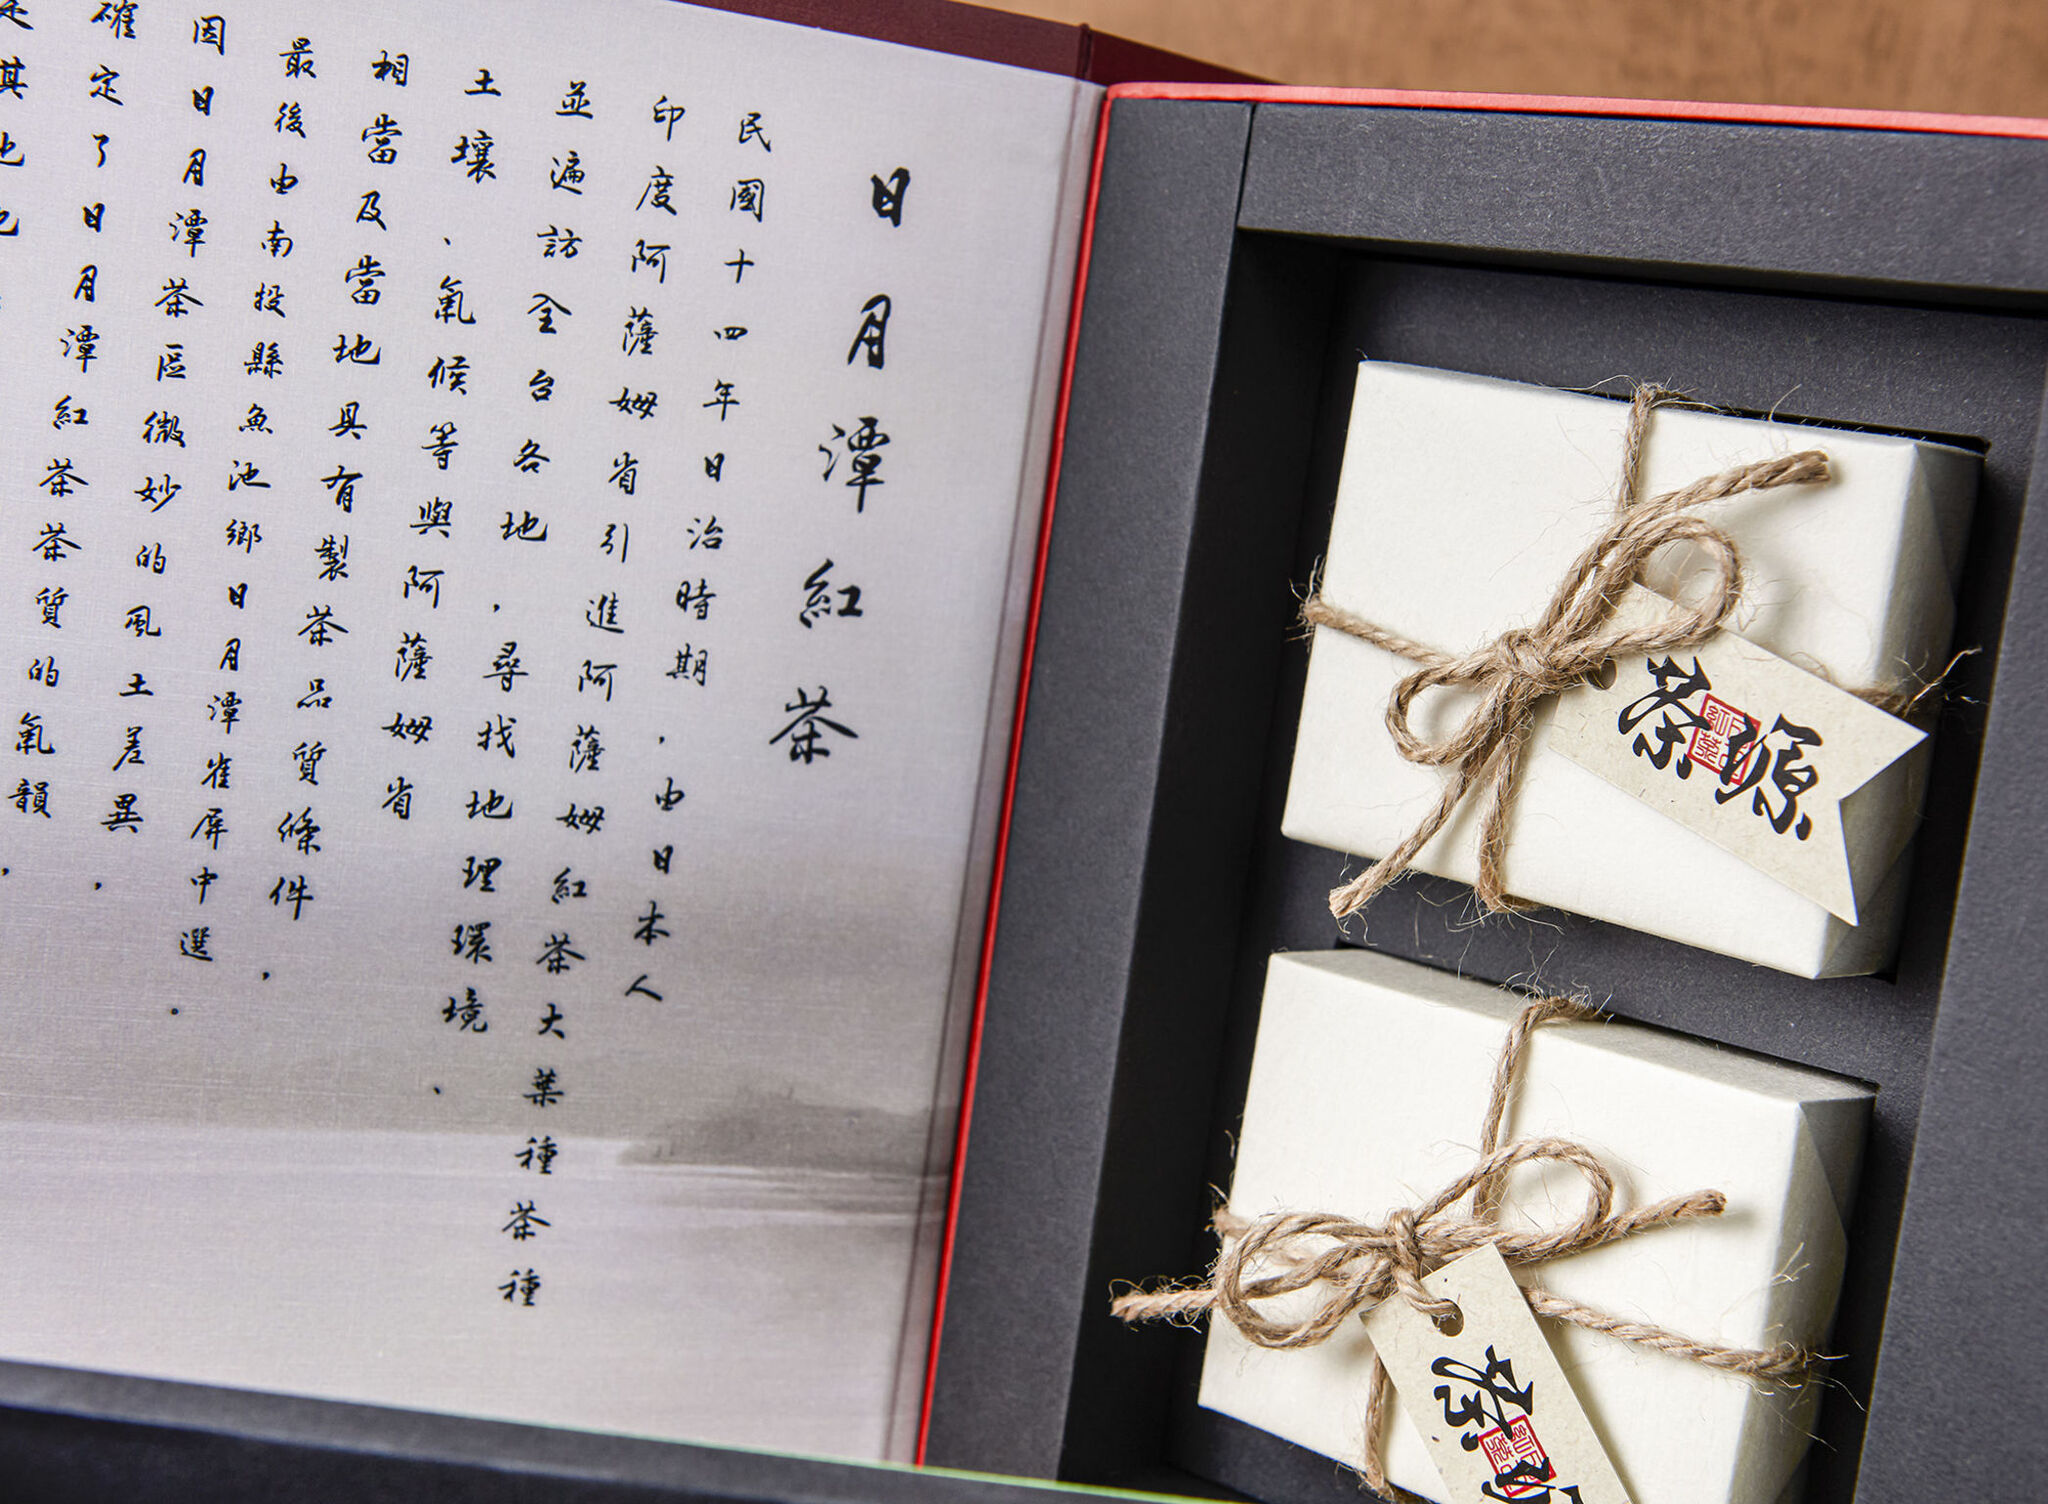 日月潭紅茶
民國十四年日治時期，由日本人
印度阿薩姆省引進阿薩姆紅茶大葉種茶種
並遍訪全台各地，尋找地理環境、
土壤、氣候等與阿薩姆省
相當及當地具有製茶品質條件，
最後由南投縣魚池鄉日月潭雀屏中選。
因日月潭茶區微妙的風土差異，
確定了日月潭紅茶茶質的氣韻，
其他
茶源
茶